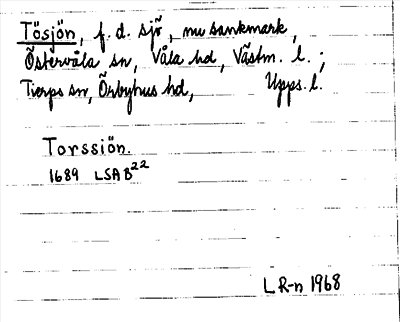 Tösjön, f. d. sjö, nu sankmark,
Östervåla sn, Våla hd, Västm. l.;
Tierps sn, Örbyhus hd, Upps. l.
Torssiön.
1689 LSA B22
L R-n 1968